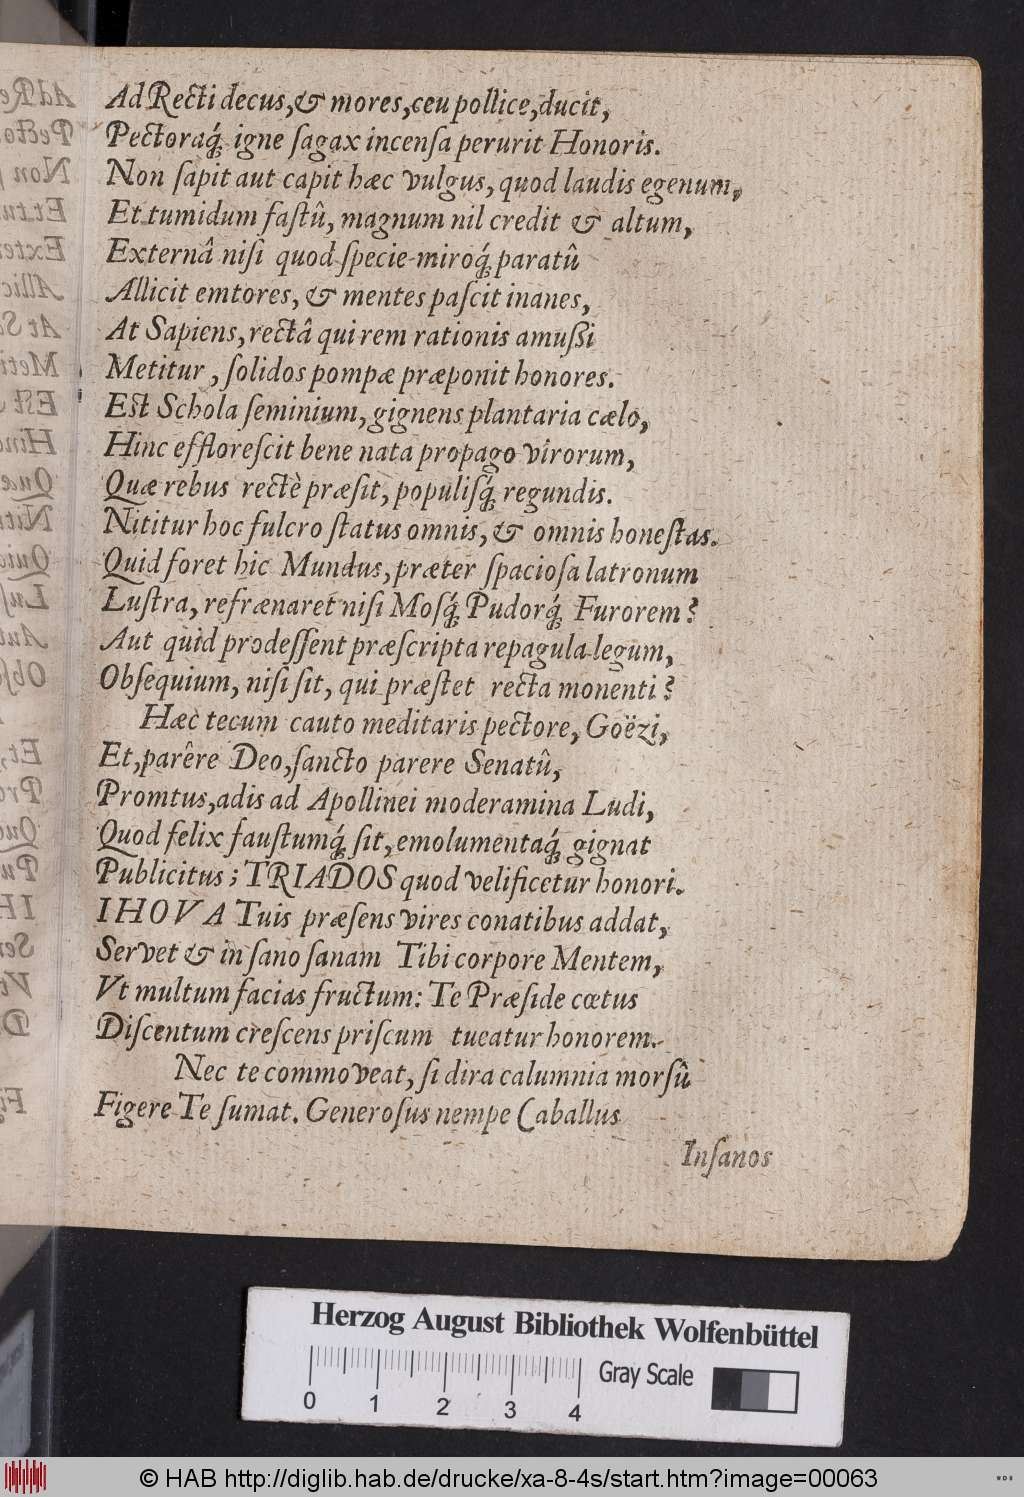 Ad Recti decus, & mores, ceu pollice, ducit,
Pectoraq́; igne ſagax incenſa perurit Honoris.
Non ſapit aut capit hæc vulgus, quod laudis egenum,
Et tumidum faſtû, magnum nil credit & altum,
Externâ niſi quod ſpecie miroq́; paratû
Allicit emtores, & mentes paſcit inanes,
At Sapiens, rectâ qui rem rationis amuſſi
Metitur, ſolidos pompæ præponit honores.
Eſt Schola ſeminium, gignens plantaria cælo,
Hinc effloreſcit bene nata propago virorum,
Quæ rebus rectè præſit, populiſq́; regundis.
Nititur hoc fulcro ſtatus omnis, & omnis honeſtas.
Quid foret hic Mundus, præter ſpacioſa latronum
Luſtra, refrænaret niſi Moſq́; Pudorq́; Furorem?
Aut quid prodeſſent præſcripta repagula legum,
Obſequium, niſi ſit, qui præſtet recta monenti?
Hæc tecum cauto meditaris pectore, Goëzi,
Et, parêre Deo, ſancto parere Senatû,
Promtus, adis ad Apollinei moderamina Ludi,
Quod felix fauſtumq́; ſit, emolumentaq́; gignat
Publicitus; TRIADOS quod velificetur honori.
IHOVA Tuis præſens vires conatibus addat,
Servet & in ſano ſanam Tibi corpore Mentem,
Vt multum facias fructum: Te Præſide cœtus
Diſcentum creſcens priſcum tueatur honorem.
Nec te commoveat, ſi dira calumnia morſû
Figere Te ſumat. Generoſus nempe Caballus
Inſanos
Herzog August Bibliothek Wolfenbüttel
0 1 2 3 4 Gray Scale
© HAB http://diglib.hab.de/drucke/xa-8-4s/start.htm?image=00063